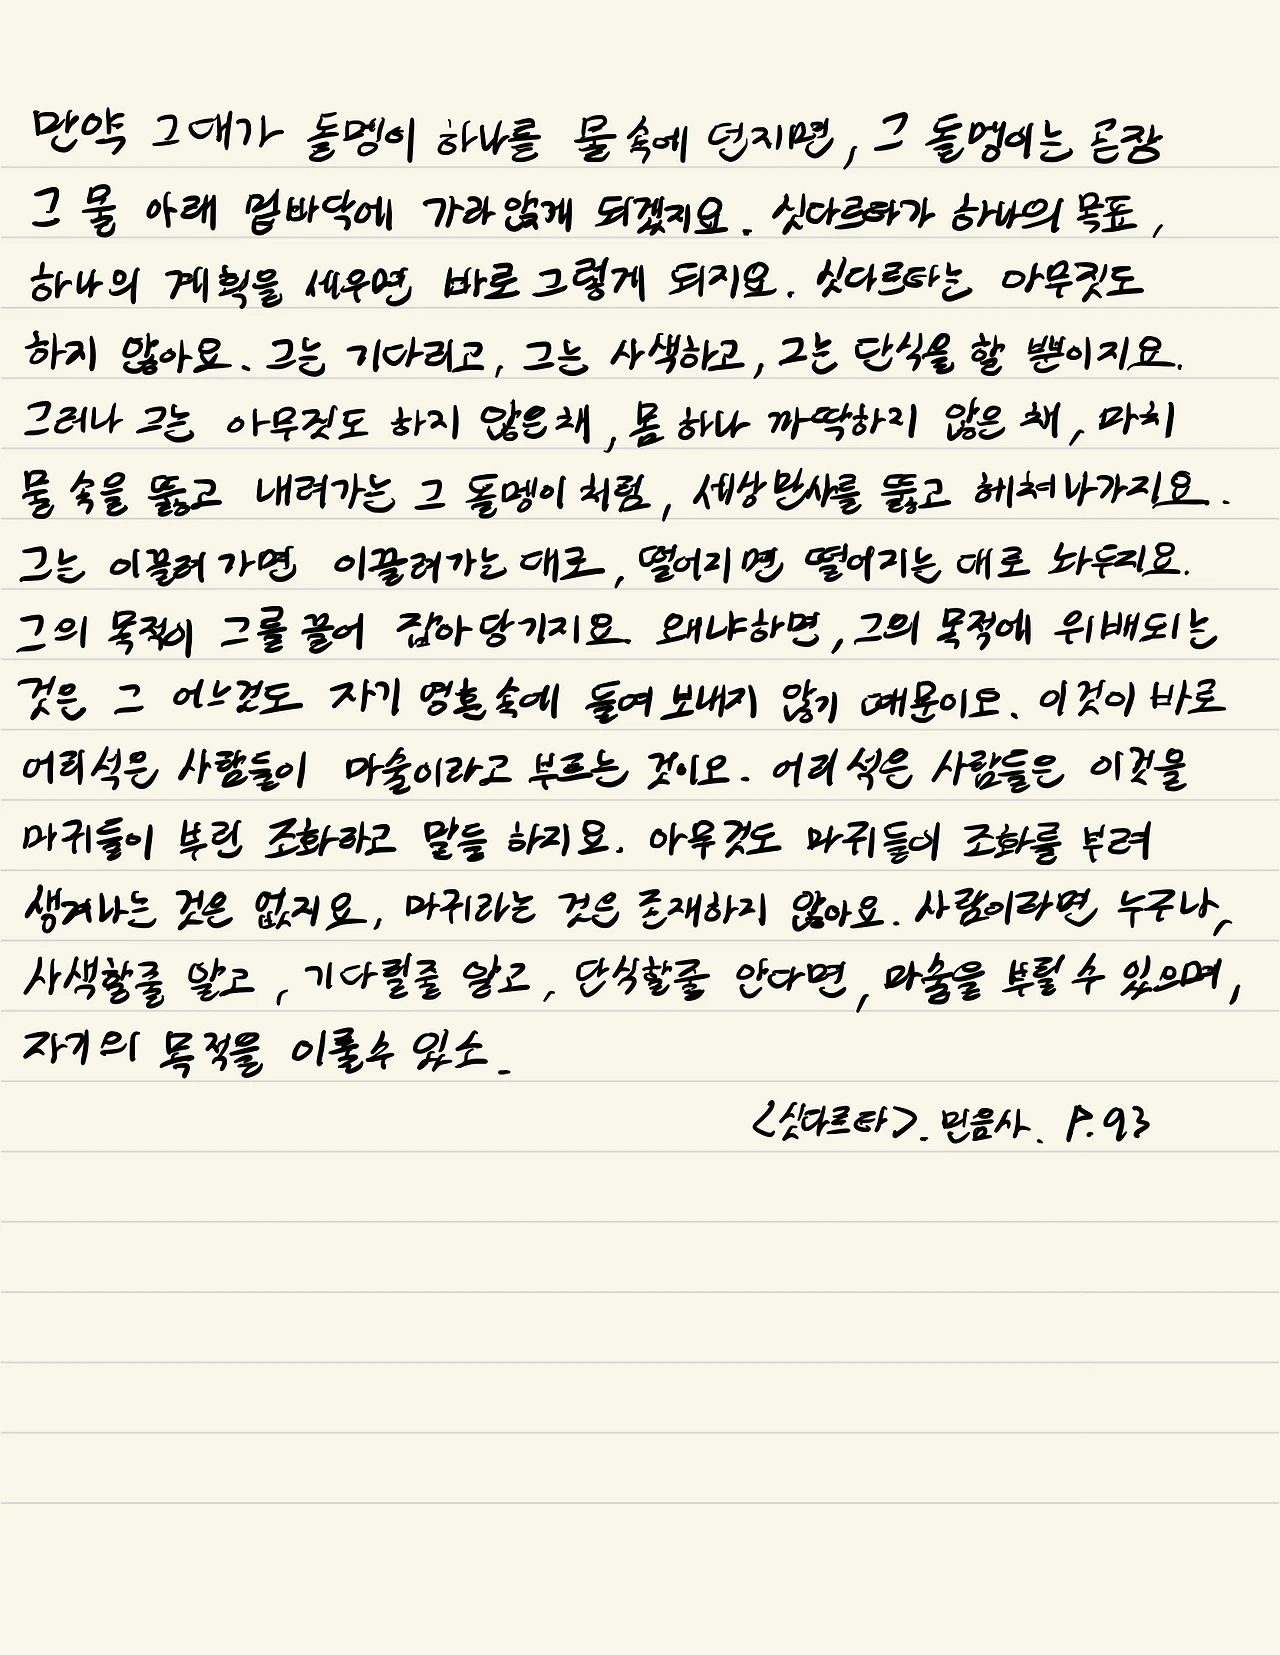 만약 그대가 돌멩이 하나를 물 속에 던지면, 그 돌멩이는 곧장
그 물 아래 밑바닥에 가라앉게 되겠지요. 싯다르타가 하나의 목표,
하나의 계획을 세우면 바로 그렇게 되지요. 싯다르타는 아무것도
하지 않아요. 그는 기다리고, 그는 사색하고, 그는 단식을 할 뿐이지요.
그러나 그는 아무것도 하지 않은채, 몸 하나 까딱하지 않은 채, 마치
물 속을 뚫고 내려가는 그 돌멩이 처럼, 세상만사를 뚫고 헤쳐나가지요.
그는 이끌려 가면 이끌려가는 대로, 떨어지면 떨어지는 대로 놔두지요.
그의 목적이 그를 끌어 잡아당기지요. 왜냐하면, 그의 목적에 위배되는
것은 그 어느것도 자기 영혼속에 들여보내지 않기 때문이오. 이것이 바로
어리석은 사람들이 마술이라고 부르는 것이오. 어리석은 사람들은 이것을
마귀들이 부린 조화라고 말들 하지요. 아무것도 마귀들이 조화를 부려
생겨나는 것은 없지요, 마귀라는 것은 존재하지 않아요. 사람이라면 누구나,
사색할줄 알고, 기다릴줄 알고, 단식할줄 안다면, 마술을 부릴 수 있으며,
자기의 목적을 이룰수 있소.
<싯다르타>. 민음사. P.93